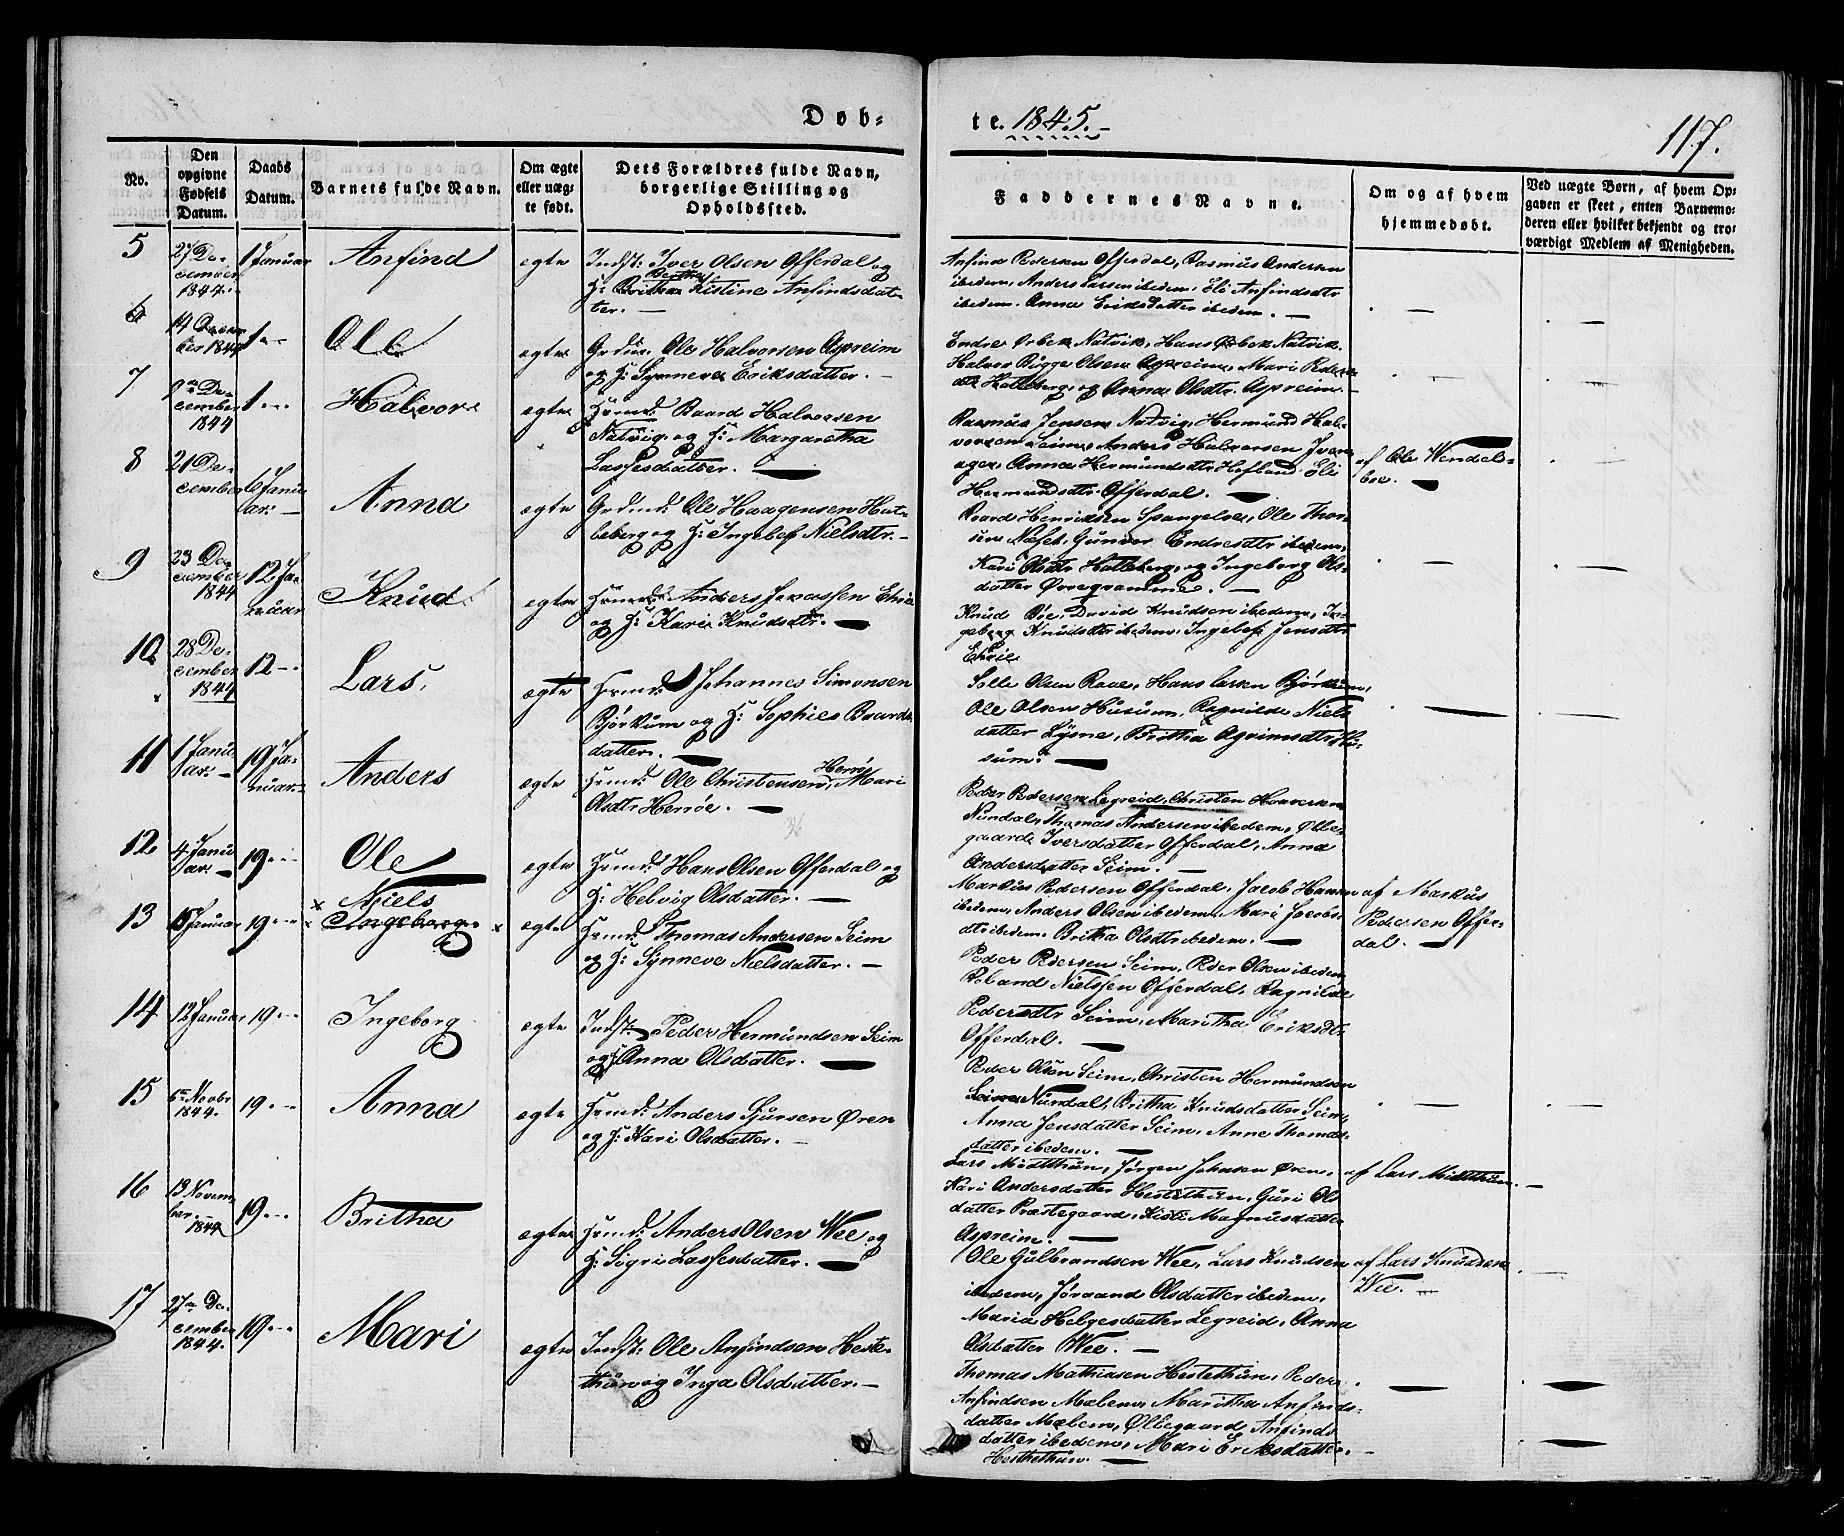 Døb-
te. 1845.
117.
No.
Den opgivne Fødsels Datum.
Daabs Datum.
Barnets fulde Navn.
Om ægte eller uæg- te født.
Dets Forældres fulde Navn, borgerlige Stilling og Opholdssted.
Faddernes Navne.
Om og af hvem hjemmedøbt.
Ved uægte Børn, af hvem Op- gaven er skeet, enten Barnemo- deren eller hvilket bekjendt og tro- værdigt Medlem af Menigheden.
5
27 De-
cember
1844.
1 Januar
Anfind
ægte
Indst: Iver Olsen Offerdal og
H: Britha Bertha Kistine Anfindsdat-
ter. —
Anfind Pedersen Offerdal, Rasmus Andersen
ibedem, Anders Larsen ibedem, Eli Anfindsdtr
ibedem. Anna Eriksdatter ibedem. —
6
14 Decem
ber 1844
1 —
Ole
ægte
Grdm: Ole Halvorsen Aspreim
og H: Synneva Eriksdatter. —
Endre Ørbek Natvik, Hans Ørbek Natvik.
Halvor Bigge Olsen Aspreim, Mari Peders
dtr Hatleberg, og Anna Olsdtr. Aspreim. —
7
9de De-
cember
1844
1 —
Halvor
ægte
Huusmd: Baard Halvorsen
Natvig, og H: Margaretha
Lassesdatter. —
Rasmus Jensen Natvig, Hermund Hal-
vorsen Seim, Anders Halvorsen
Anna Hermundsdtr Hefland, Eli
Hermundsdtr Offerdal. —
af Ole Wendels-
boe. —
8
21 De-
cember
6 Janu
ar. —
Anna
ægte
Grdmd: Ole Haagensen Hat-
leberg og H: Ingelef Nielsdtr. —
Baard Henriksen Spangeloe, Ole Thor-
sen Næset, Gunvor Endresdtr ibedem,
Kari Olsdtr Hatleberg, og Ingeborg Ols-
datter Øvregramme. —
9
23 De-
cember
1844
12 Ja-
nuar
Knud
ægte
Huusmd: Anders Jonassen Ethrie
og H: Kari Knudsdtr. —
Knud Boe, David Knudsen ibedem, In-
geborg Knudsdtr ibedem, Ingelef Jensdtr
Ethrie
10
28 De-
cember
1844
12 —
Lars
ægte
Huusmd: Johannes Simonsen
Bjørkum og H: Sophie Baards
datter. —
Solle Olsen Raae, Hans Larsen Bjørkum,
Ole Olsen Husum, Ragnilde Niels
datter Lysne, Britha Asgrimsdtr Hu-
sum. —
11
1 Janu
ar. —
19 Ja-
nuar
Anders
ægte
Huusmd: Ole Christensen Herrøe, Mari
Olsdtr Herrøe. —
Peder Pedersen Legreid, Christen Haaversen
Nundal, Thomas Andersen ibedem, Olle-
gaard Iversdatter Offerdal, Anna
Andersdatter Seim. —
12
4 Janu
ar. —
19 —
Ole
ægte
Huusmd: Hans Olsen Offerdal og
H: Helvig Olsdatter. —
Markus Pedersen Offerdal, Jacob Hansen
ibedem, Anders Olsen ibedem, Mari Jacobs-
dtr ibedem. Britha Olsdtr ibedem. —
af Markus
Pedersen Offer-
dal. —
13
15 Januar
19 —
Niels
Ingeborg
ægte
Huusmd: Thomas Andersen Seim
og H: Synneve Nielsdatter. —
Peder Pedersen Seim, Peder Olsen ibedem,
Roland Nielssen Offerdal, Ragnilde
Pedersdtr Seim, Maritha Eriksdtr
Offerdal. —
14
12 Januar
19 —
Ingeborg
ægte
Indst: Peder Hermundsen Seim
og H: Anna Olsdatter. —
Peder Olsen Seim, Christen Hermundsen
Seim Nundal, Britha Knudsdatter Seim,
Anna Jensdatter Seim, Anne Thomas-
datter ibedem. —
15
6te Novbr
1844.
19 —
Anna
ægte
Huusmd: Anders Sjursen Øren
og H: Kari Olsdatter. —
Lars Midtthun, Jørgen Johnsen Øren,
Kari Andersdatter Hestethun, Guri Ols
datter Præstegaard, Kisti Magnusdatter
Aspreim. —
af Lars Midtthun. —
16
13 Novem
ber. —
1844
19 —
Britha
ægte
Huusmd: Anders Olsen Wee og
H: Sigri Lassesdatter. —
Ole Gulbrandsen Wee, Lars Knudsen
ibedem, Jøraand Olsdatter ibedem,
Maria Helgesdatter Legreid, Anna
Olsdatter Wee. —
af Lars Knudsen
Wee. —
17
27de De-
cember
1844.
19 —
Mari
ægte
Indst: Ole Anfindsen Heste-
thun og Inga Olsdatter. —
Thomas Mathiasen Hestethun, Peder
Anfindsen Mælem, Maritha Anfinds-
datter Mælem, Øllegaard Anfinds
datter ibedem, Mari Eriksdatter
Hesthethun. —